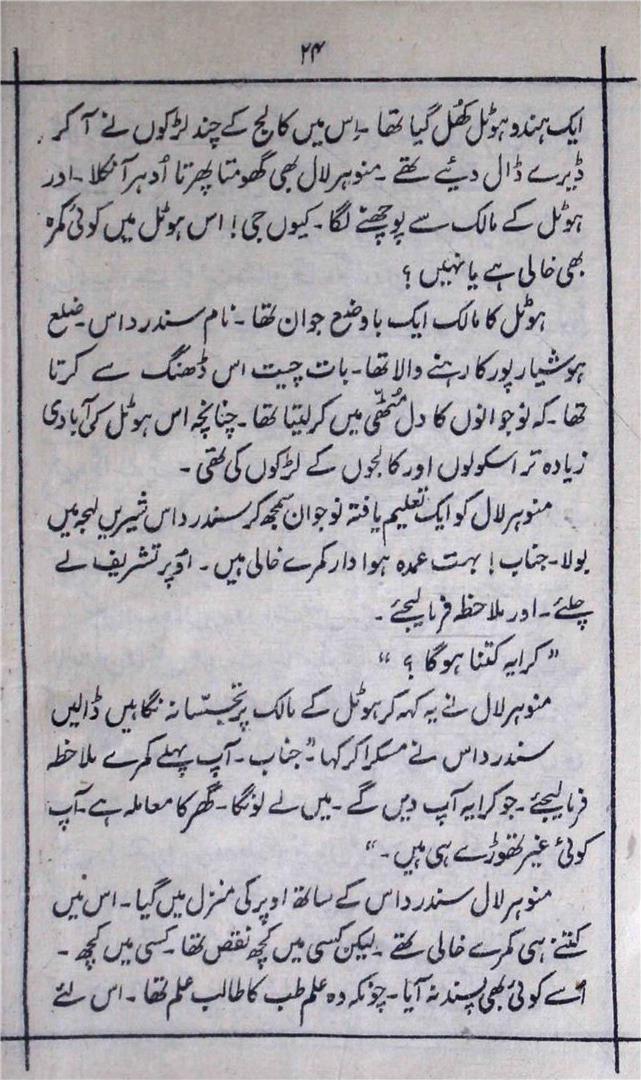 ۲۴
ایک ہندو ہوٹل کھُل گیا تھا ۔ اِس میں کالج کے چند لڑکوں نے آ کر
ڈیرے ڈال دیئے تھے ۔ منوہر لال بھی گھومتا پھرتا اُدہر آ نکلا ۔ اور
ہوٹل کے مالک سے پوچھنے لگا ۔ کیوں جی ! اس ہوٹل میں کوئی کمرہ
بھی خالی ہے یا نہیں ؟
ہوٹل کا مالک ایک باوضع جوان تھا ۔ نام سندر داس ۔ ضلع
ہوشیارپور کا رہنے والا تھا ۔ بات چیت اس ڈھنگ سے کرتا
تھا ۔ کہ نوجوانوں کا دل مُٹھّی میں کر لیتا تھا ۔ چنانچہ اس ہوٹل کی آبادی
زیادہ تر اسکولوں اور کالجوں کے لڑکوں کی تھی ۔
منوہر لال کو ایک تعلیم یافتہ نوجوان سمجھ کر سندر داس شیریں لہجہ میں
بولا ۔ جناب ! بہت عمدہ ہوا دار کمرے خالی ہیں ۔ اوپر تشریف لے
چلئے ۔ اور ملاحظہ فرما لیجئے ۔
” کرایہ کتنا ہو گا ؟ “
منوہر لال نے یہ کہہ کر ہوٹل کے مالک پر تجسّسانہ نگاہیں ڈالیں
سندر داس نے مسکرا کر کہا ” جناب ۔ آپ پہلے کمرے ملاحظہ
فرما لیجئے ۔ جو کرایہ آپ دیں گے ۔ میں لے لونگا ۔ گھر کا معاملہ ہے ۔ آپ
کوئی غیر تھوڑے ہی ہیں ۔ “
منوہر لال سندر داس کے ساتھ اوپر کی منزل میں گیا ۔ اس میں
کتنے ہی کمرے خالی تھے ۔ لیکن کسی میں کچھ نقص تھا ۔ کسی میں کچھ ۔
اُسے کوئی بھی پسند نہ آیا ۔ چونکہ وہ علم طب کا طالب علم تھا ۔ اس لئے